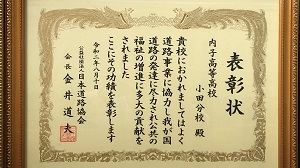 表彰状
内子高等学校
小田分校 殿
貴校におかれましてはよく
道路事業に協力し我が国
道路の発達に尽力され公共の
福祉の増進に多大の貢献を
されました
ここにその功績を表彰します
令和六年八月十日
公益社団法人 日本道路協会
会長 金井道夫